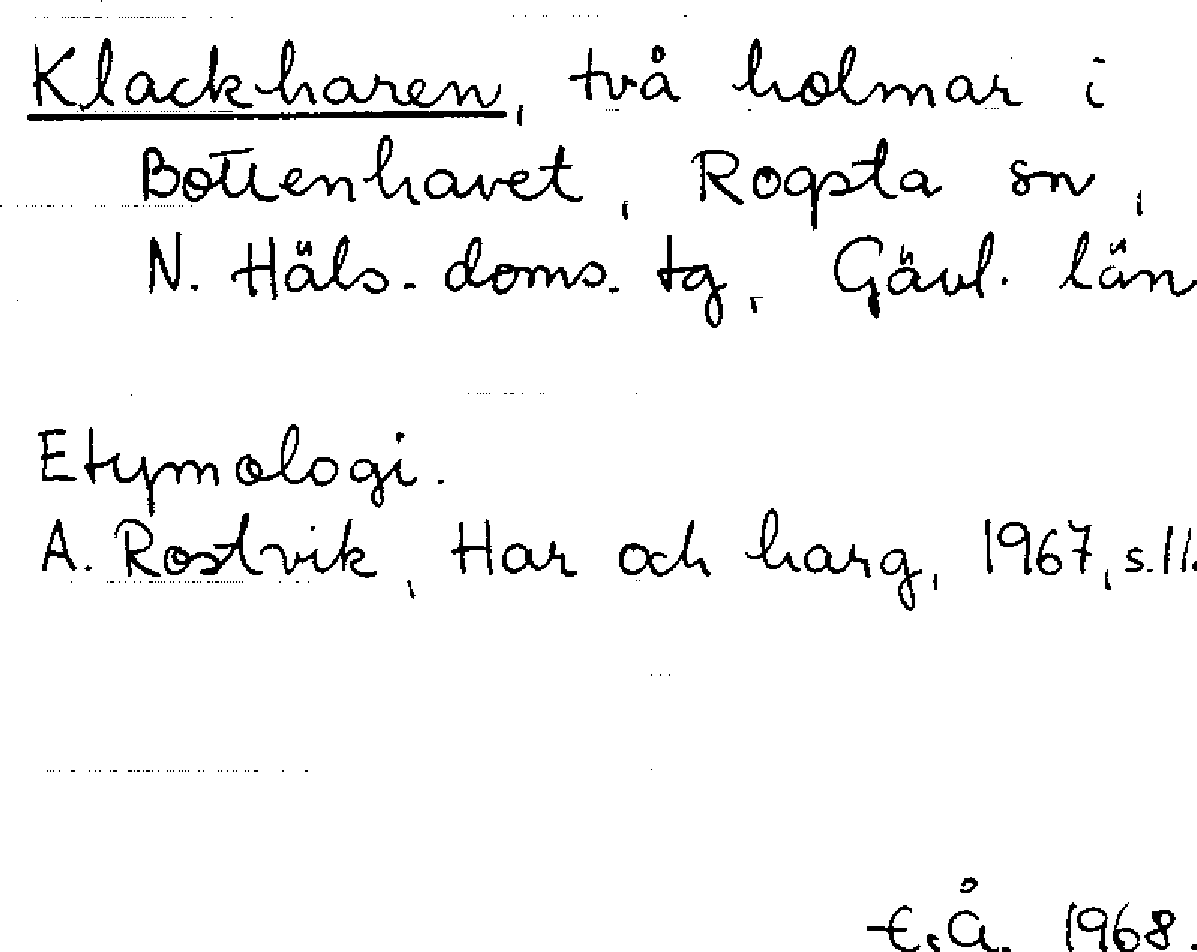 Klackharen, två holmar i
Bottenhavet, Rogsta sn,
N. Häls. doms. tg, Gävl. län
Etymologi.
A. Rostvik, Har och harg, 1967, s. 11.
E.Å. 1968.